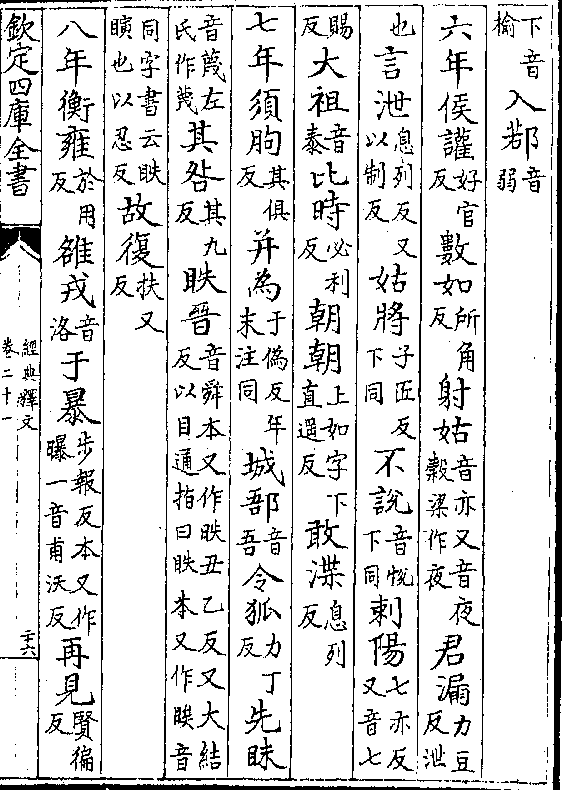 下音榆入鄀音弱
六年侯讙好官反數如所角反射姑音亦又音夜穀梁作夜君漏力豆反泄
也言泄息列反又以制反姑將子匠反下同不說音悅下同刺陽七亦反又音七
賜反大祖音泰比時必利反朝朝上如字下直遥反敢渫息列反
七年須朐其俱反并為于偽反年末注同城郚音吾令狐力丁反先眜
音蔑左氏作蔑其咎其九反眣晉音舜本又作眣丑乙反又大結反以目通指曰眣本又作音
同字書云眣瞚也以忍反故復扶又反
八年衡雍於用反雒戎音洛于暴步報反本又作曝一音甫沃反再見賢徧反
欽定四庫全書
經典釋文
卷二十一
二十六